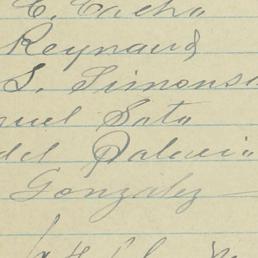 C. Cacho
Reynaud
S. Simons
uel Soto
del Palaci
Gonzalez